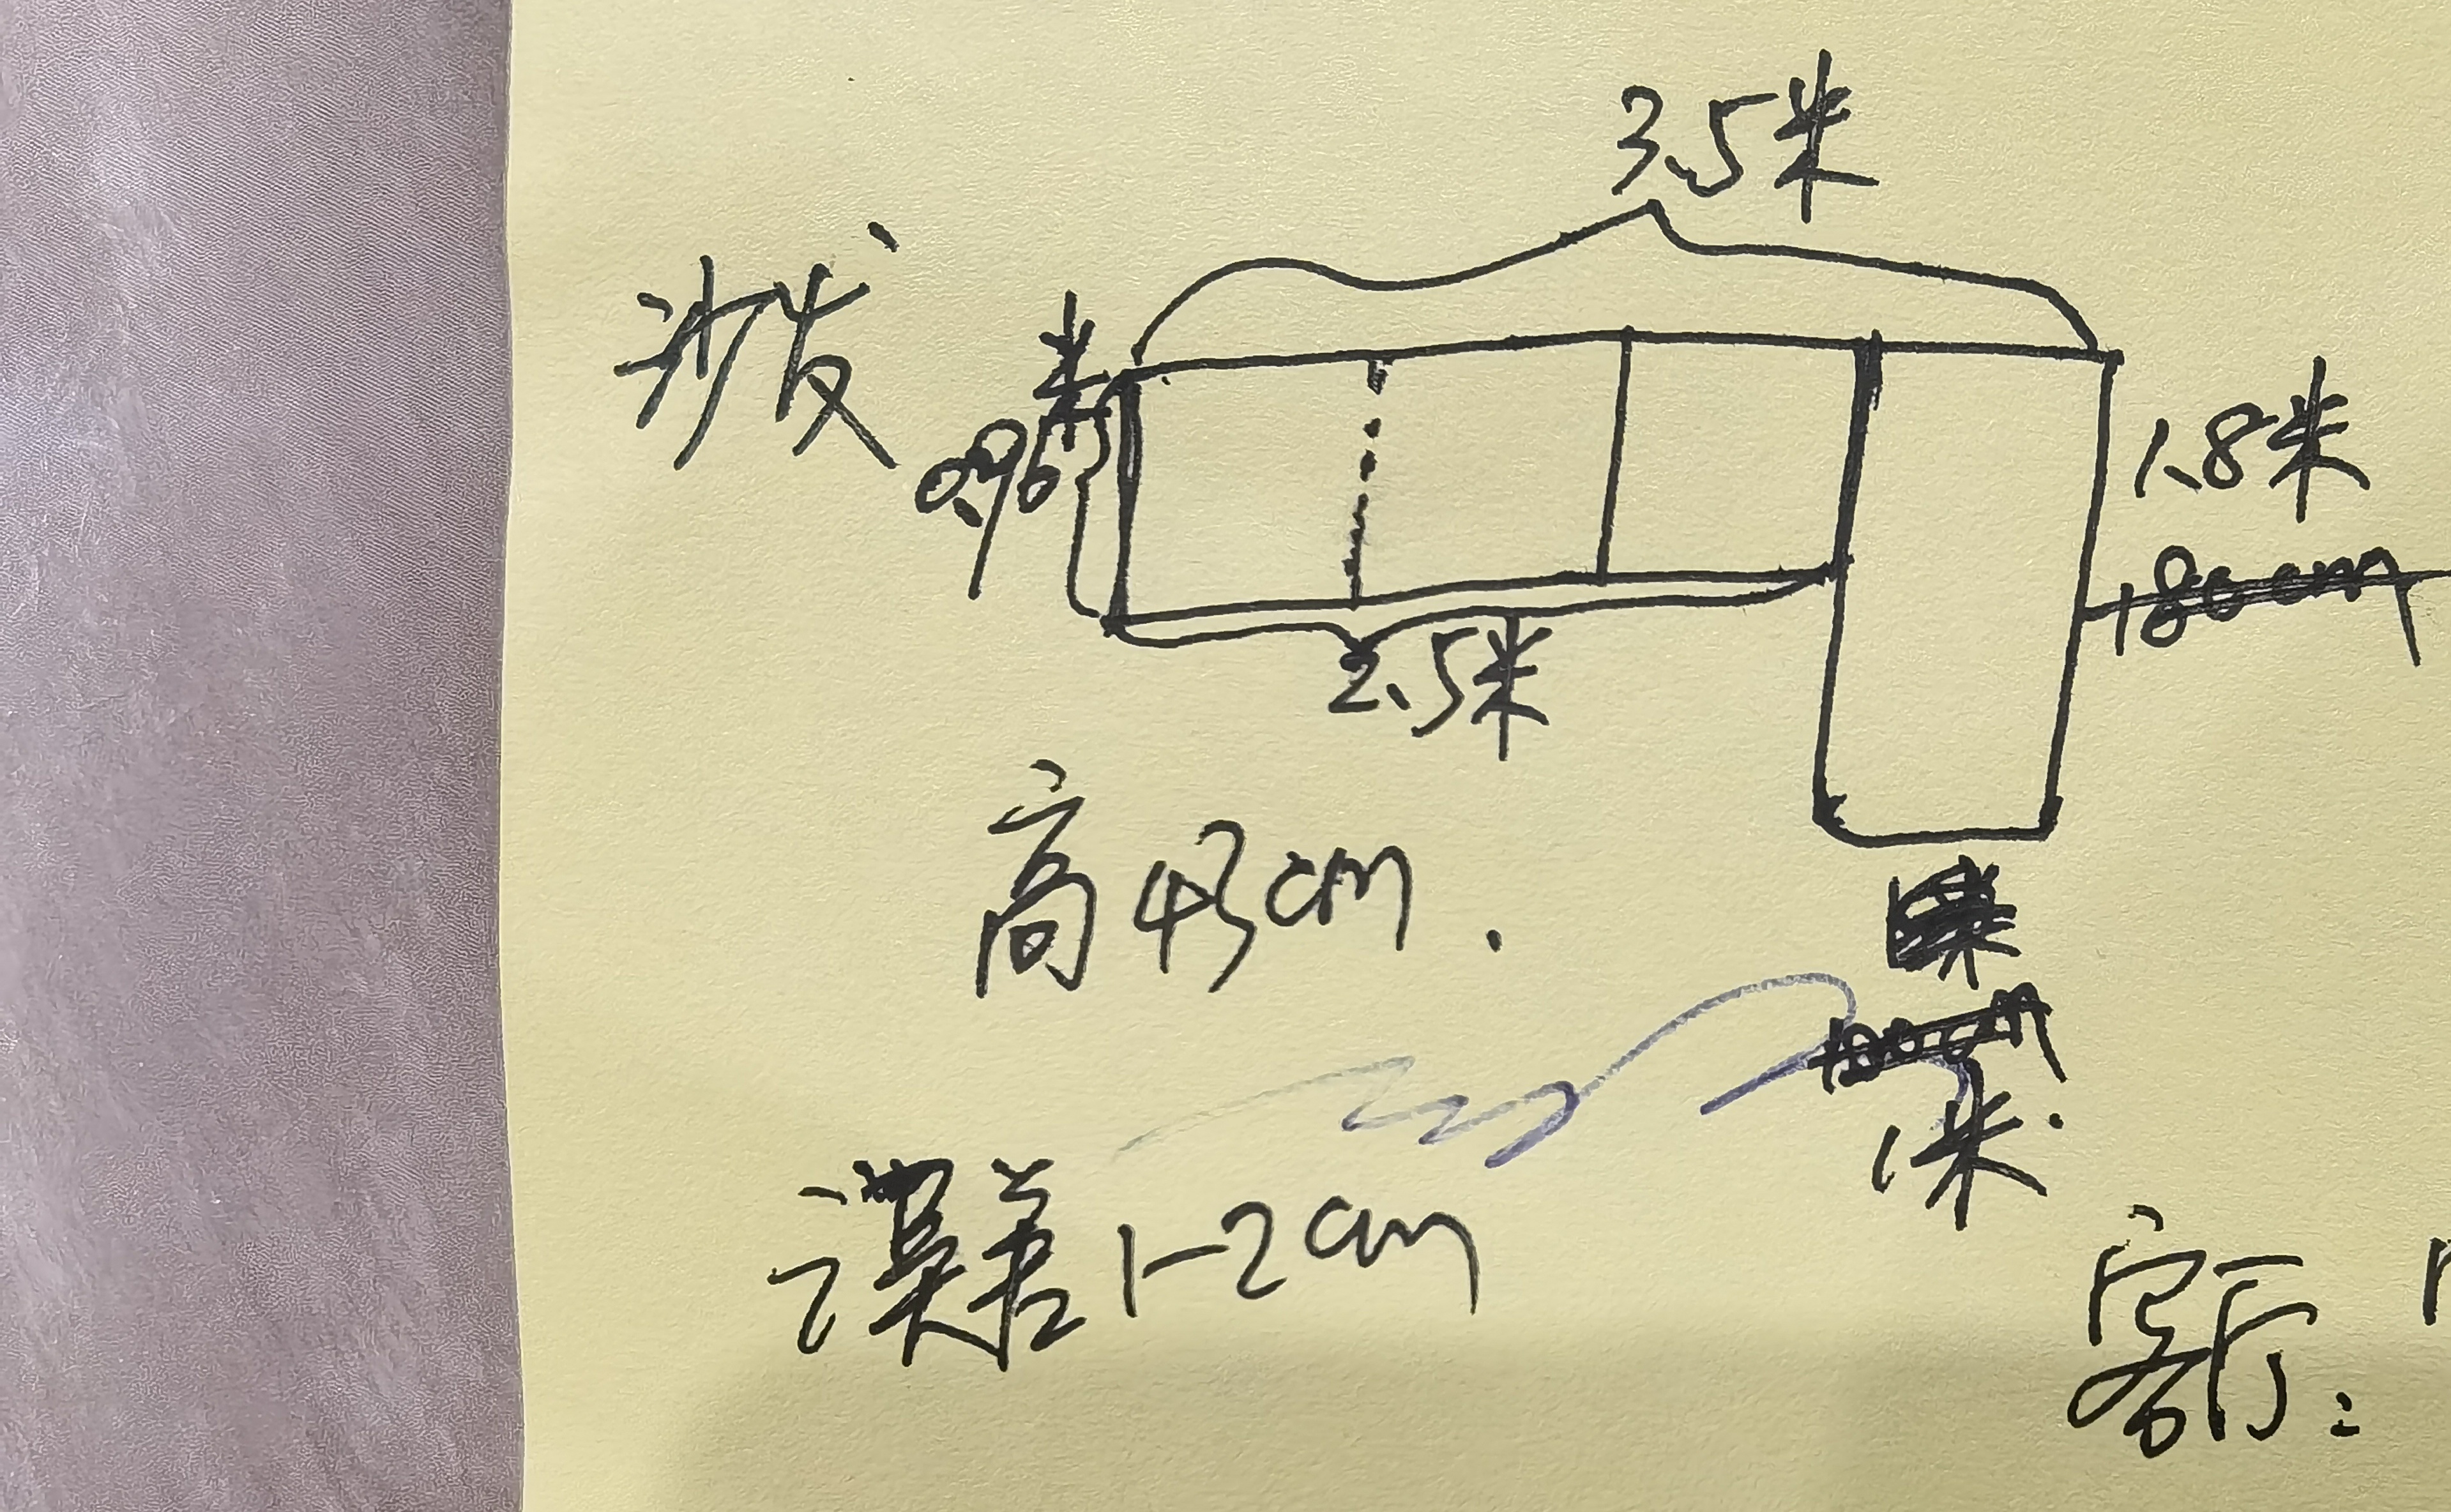 3.5米
沙发
0.96米
1.8米
180cm
2.5米
高43cm.
100cm
1米.
误差1-2cm
客厅: